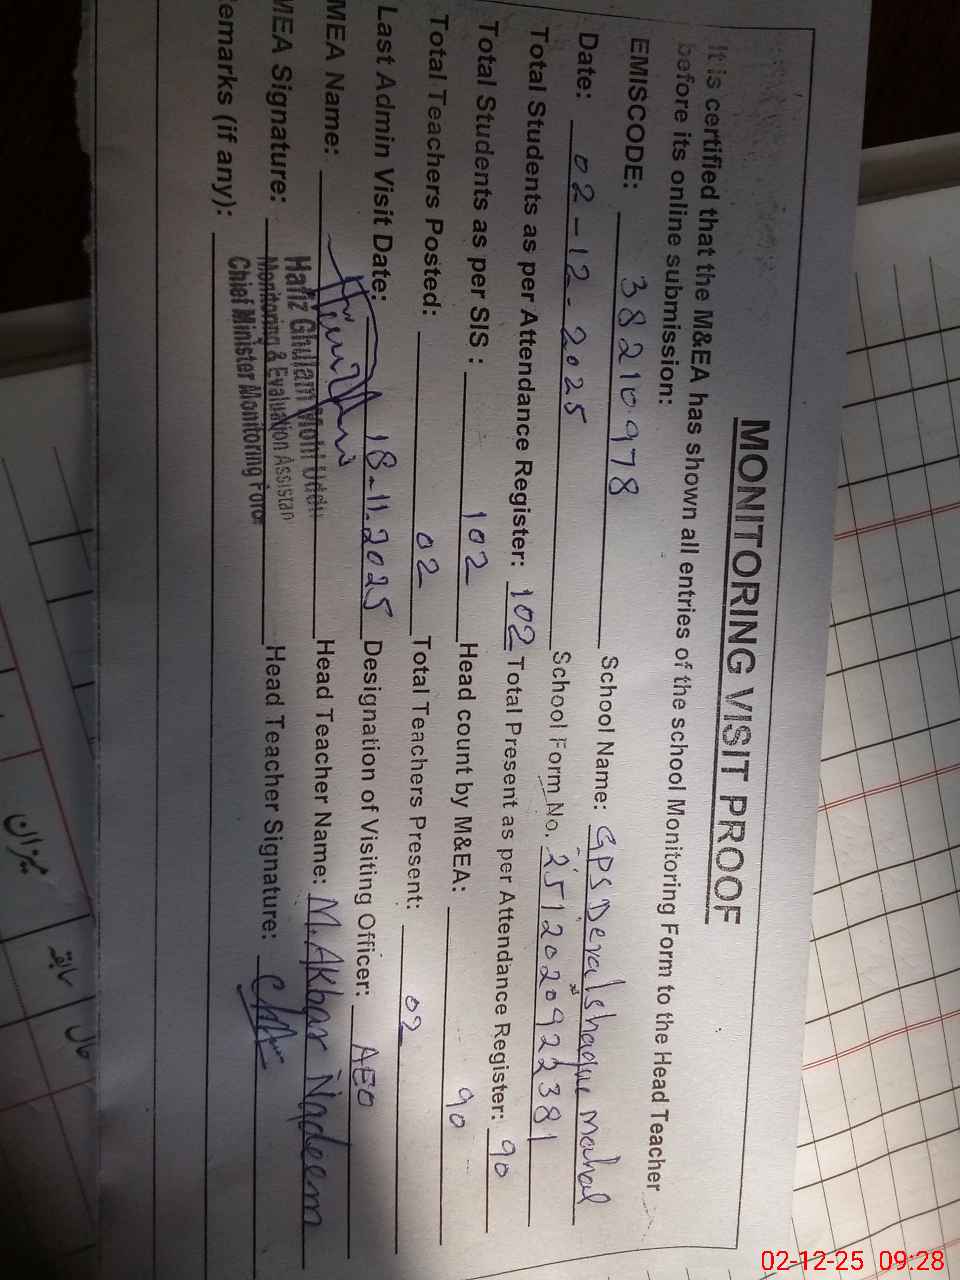 MONITORING VISIT PROOF
It is certified that the M&EA has shown all entries of the school Monitoring Form to the Head Teacher
before its online submission:
EMISCODE: 38210978 School Name: GPS Deval shaque mahal
Date: 02-12-2025 School Form No. 2512020922381
Total Students as per Attendance Register: 102 Total Present as per Attendance Register: 90
Total Students as per SIS : 102 Head count by M&EA: 90
Total Teachers Posted: 02 Total Teachers Present: 02
Last Admin Visit Date: 18-11-2025 Designation of Visiting Officer: AEO
MEA Name: Head Teacher Name: M. Akbar Nadeem
Hafiz Ghulam Mohi Uddin
MEA Signature: Head Teacher Signature:
Monitoring & Evaluation Assistan
Chief Minister Monitoring Force
emarks (if any):
میزان
سابقہ
حال
02-12-25 09:28